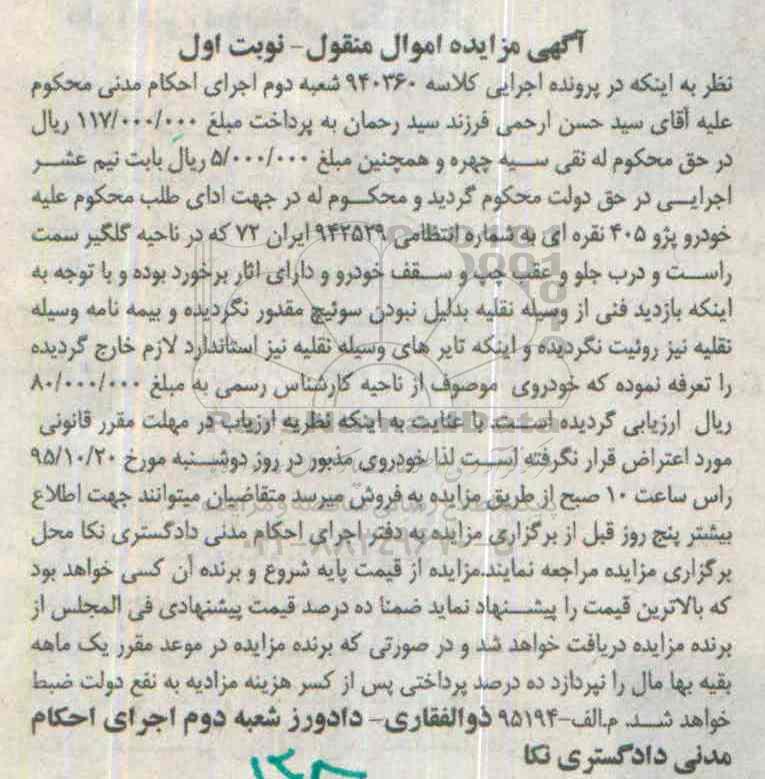 آگهی مزایده اموال منقول- نوبت اول
نظر به اینکه در پرونده اجرایی کلاسه ۹۴۰۳۶۰ شعبه دوم اجرای احکام مدنی محکوم
علیه آقای سید حسن ارحمی فرزند سید رحمان به پرداخت مبلغ ۱۱۷/۰۰۰/۰۰۰ ریال
در حق محکوم له نقی سیه چهره و همچنین مبلغ ۵/۰۰۰/۰۰۰ ریال بابت نیم عشر
اجرایی در حق دولت محکوم گردید و محکوم له در جهت ادای طلب محکوم علیه
خودرو پژو ۴۰۵ نقره ای به شماره انتظامی ۹۴۲۵۲۹ ایران ۷۲ که در ناحیه گلگیر سمت
راست و درب جلو و عقب چپ و سقف خودرو و دارای اثار برخورد بوده و با توجه به
اینکه بازدید فنی از وسیله نقلیه بدلیل نبودن سوئیچ مقدور نگردیده و بیمه نامه وسیله
نقلیه نیز روئیت نگردیده و اینکه تایر های وسیله نقلیه نیز استاندارد لازم خارج گردیده
را تعرفه نموده که خودروی موصوف از ناحیه کارشناس رسمی به مبلغ ۸۰/۰۰۰/۰۰۰
ریال ارزیابی گردیده است. با عنایت به اینکه نظریه ارزیاب در مهلت مقرر قانونی
مورد اعتراض قرار نگرفته است لذا خودروی مذبور در روز دوشنبه مورخ ۹۵/۱۰/۲۰
راس ساعت ۱۰ صبح از طریق مزایده به فروش میرسد متقاضیان میتوانند جهت اطلاع
بیشتر پنج روز قبل از برگزاری مزایده به دفتر اجرای احکام مدنی دادگستری نکا محل
برگزاری مزایده مراجعه نمایند.مزایده از قیمت پایه شروع و برنده آن کسی خواهد بود
که بالاترین قیمت را پیشنهاد نماید ضمنا ده درصد قیمت پیشنهادی فی المجلس از
برنده مزایده دریافت خواهد شد و در صورتی که برنده مزایده در موعد مقرر یک ماهه
بقیه بها مال را نپردازد ده درصد پرداختی پس از کسر هزینه مزادیه به نفع دولت ضبط
خواهد شد. م.الف-۹۵۱۹۴ ذوالفقاری- دادورز شعبه دوم اجرای احکام
مدنی دادگستری نکا